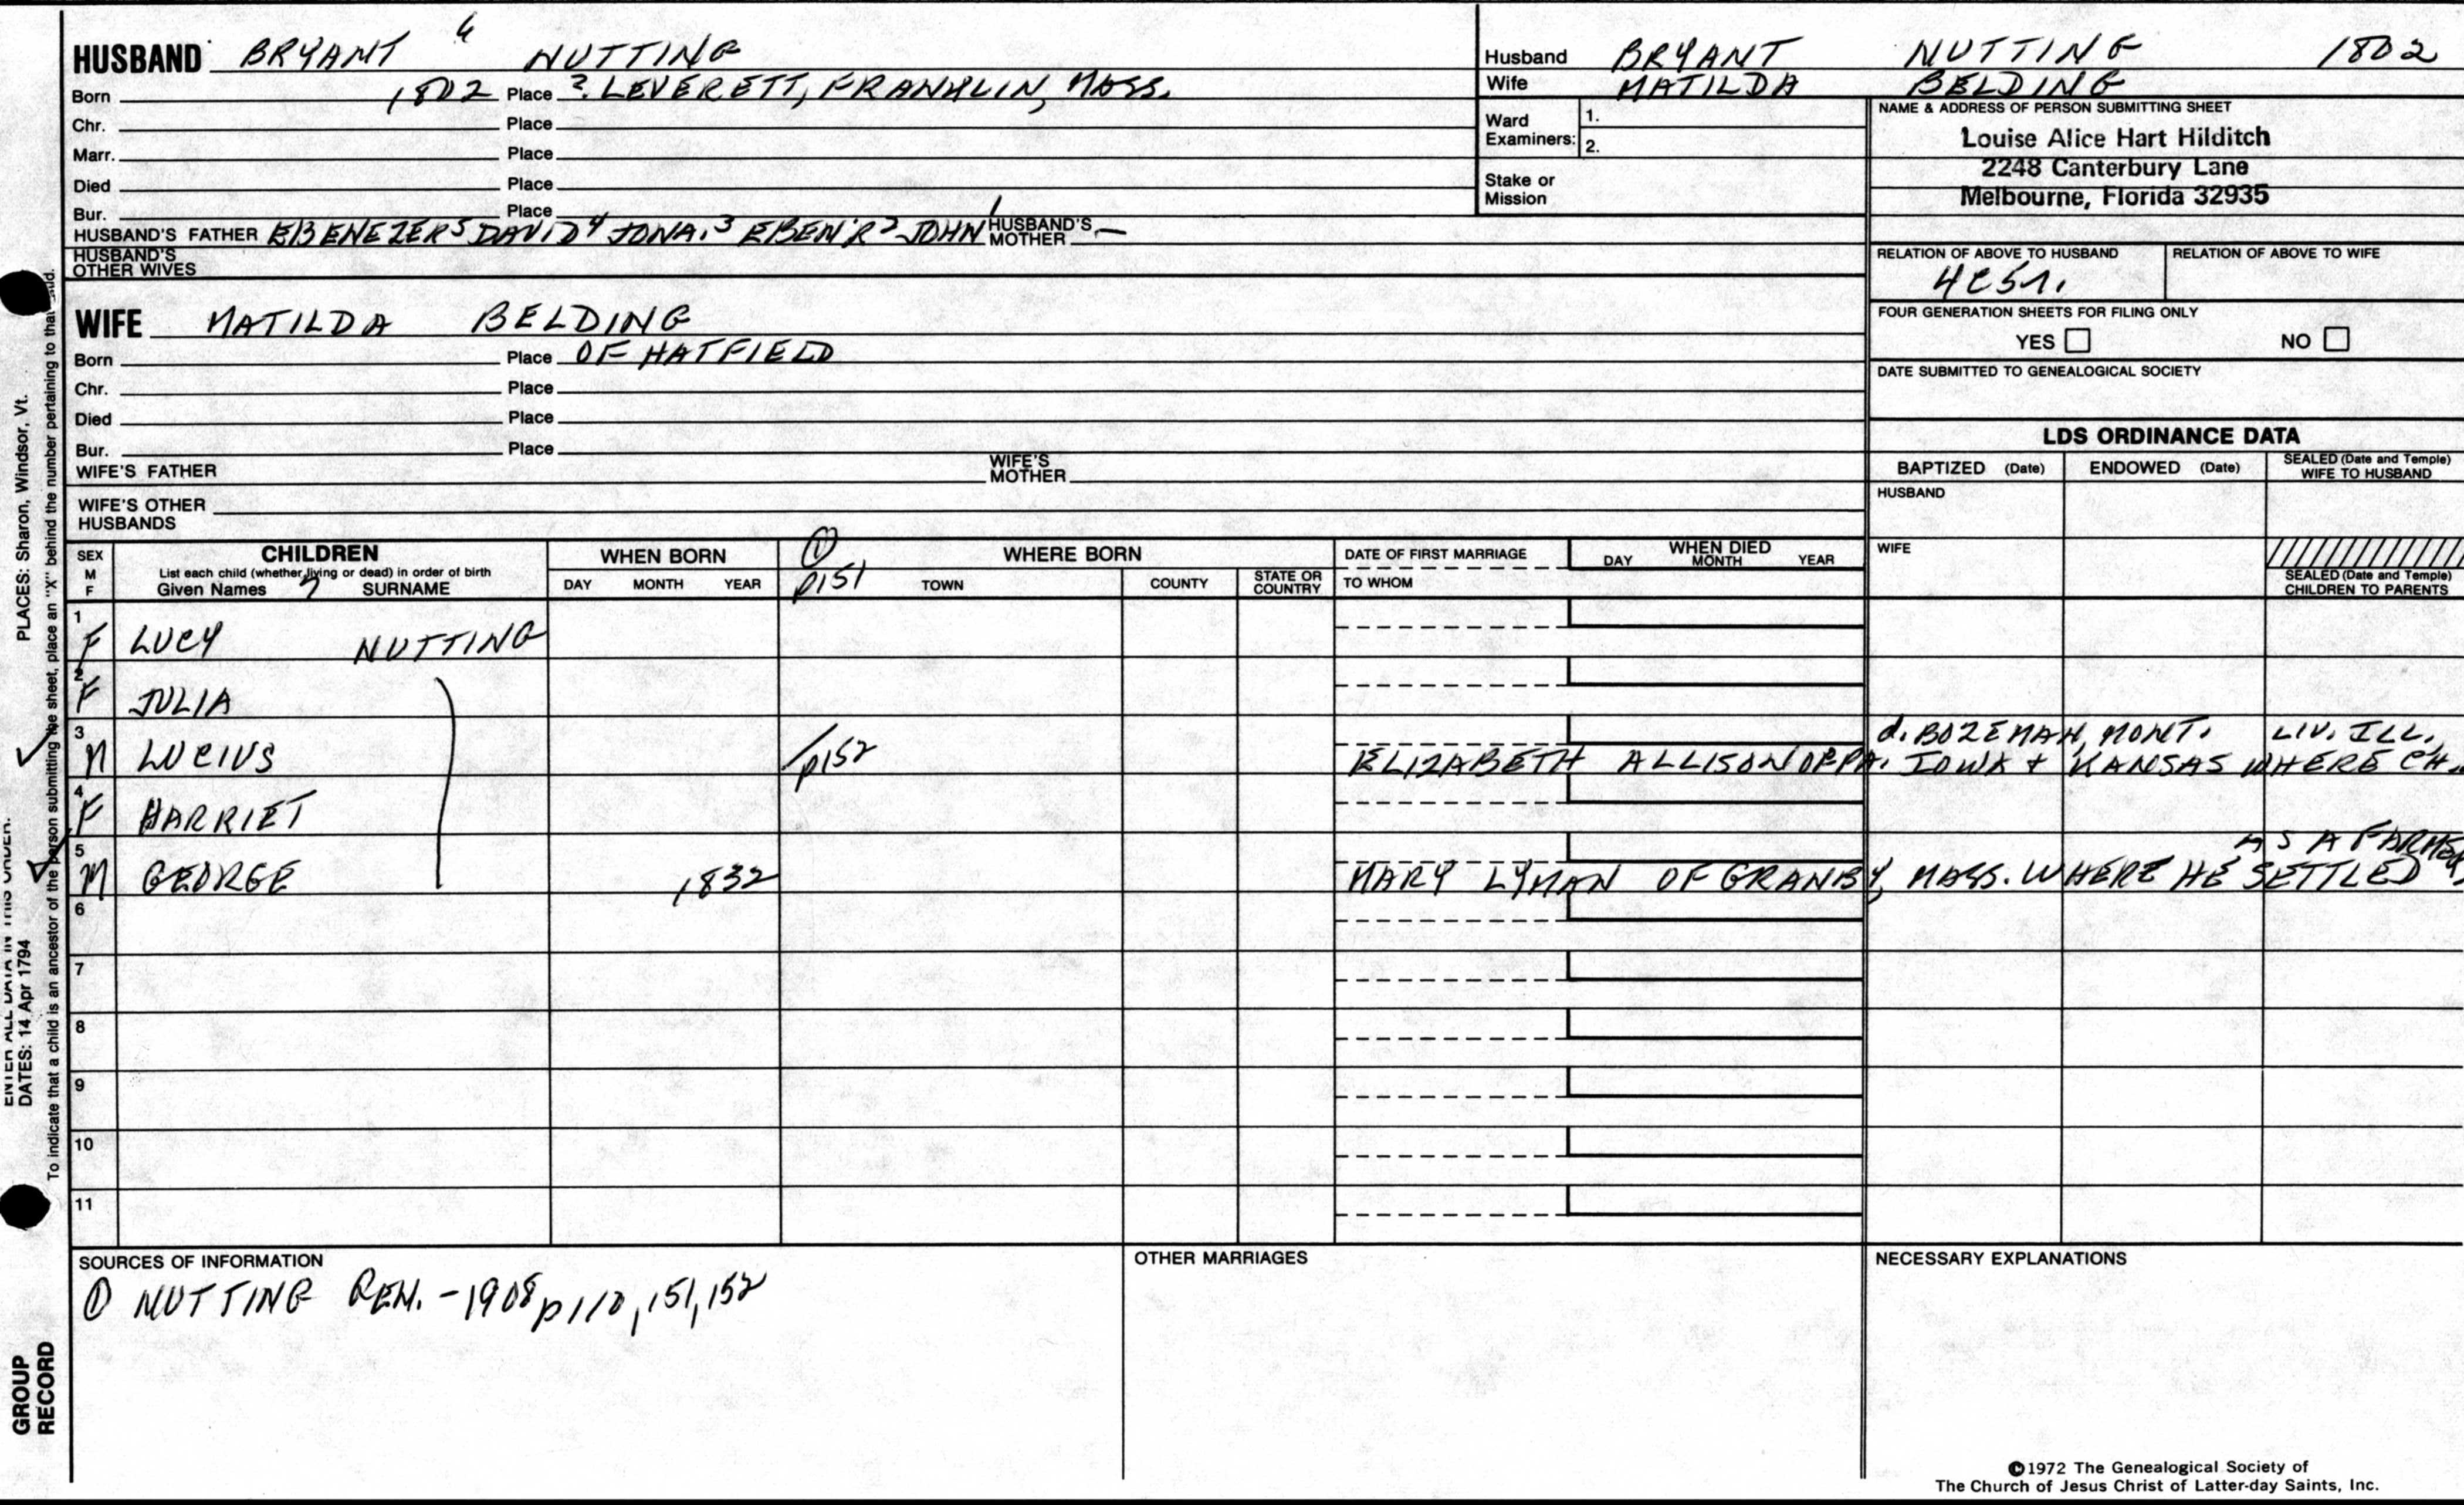 HUSBAND BRYANT 6 NUTTING
Born 1802 Place ? LEVERETT, FRANKLIN, MASS.
Chr. Place
Marr. Place
Died Place
Bur. Place
HUSBAND'S FATHER EBENEZER 5 DAVID 4 JONA. 3 EBEN'R 2 JOHN 1 HUSBAND'S MOTHER —
HUSBAND'S OTHER WIVES
Husband BRYANT NUTTING 1802
Wife MATILDA BELDING
Ward Examiners: 1.
2.
Stake or Mission
NAME & ADDRESS OF PERSON SUBMITTING SHEET
Louise Alice Hart Hilditch
2248 Canterbury Lane
Melbourne, Florida 32935
RELATION OF ABOVE TO HUSBAND RELATION OF ABOVE TO WIFE
4C5r.
FOUR GENERATION SHEETS FOR FILING ONLY
YES NO
DATE SUBMITTED TO GENEALOGICAL SOCIETY
WIFE MATILDA BELDING
Born Place OF HATFIELD
Chr. Place
Died Place
Bur. Place
WIFE'S FATHER WIFE'S MOTHER
WIFE'S OTHER HUSBANDS
LDS ORDINANCE DATA
BAPTIZED (Date) ENDOWED (Date) SEALED (Date and Temple) WIFE TO HUSBAND
HUSBAND
WIFE
SEALED (Date and Temple) CHILDREN TO PARENTS
SEX M F
CHILDREN
List each child (whether living or dead) in order of birth
Given Names 7 SURNAME
WHEN BORN
DAY MONTH YEAR
① p151
WHERE BORN
TOWN COUNTY STATE OR COUNTRY
DATE OF FIRST MARRIAGE
TO WHOM
WHEN DIED
DAY MONTH YEAR
1 F LUCY NUTTING
2 F JULIA
3 M LUCIUS p152 ELIZABETH ALLISON OF PA. d. BOZEMAN, MONT. LIV. ILL., IOWA + KANSAS WHERE CH.
4 F HARRIET
5 M GEORGE 1832 MARY LYMAN OF GRANBY, MASS. WHERE HE SETTLED AS A FARMER
6
7
8
9
10
11
SOURCES OF INFORMATION
① NUTTING GEN. - 1908 p110, 151, 152
OTHER MARRIAGES
NECESSARY EXPLANATIONS
©1972 The Genealogical Society of
The Church of Jesus Christ of Latter-day Saints, Inc.
PLACES: Sharon, Windsor, Vt.
To indicate that a child is an ancestor of the person submitting the sheet, place an "X" behind the number pertaining to that child.
ENTER ALL DATA IN THIS ORDER:
DATES: 14 Apr 1794
GROUP
RECORD